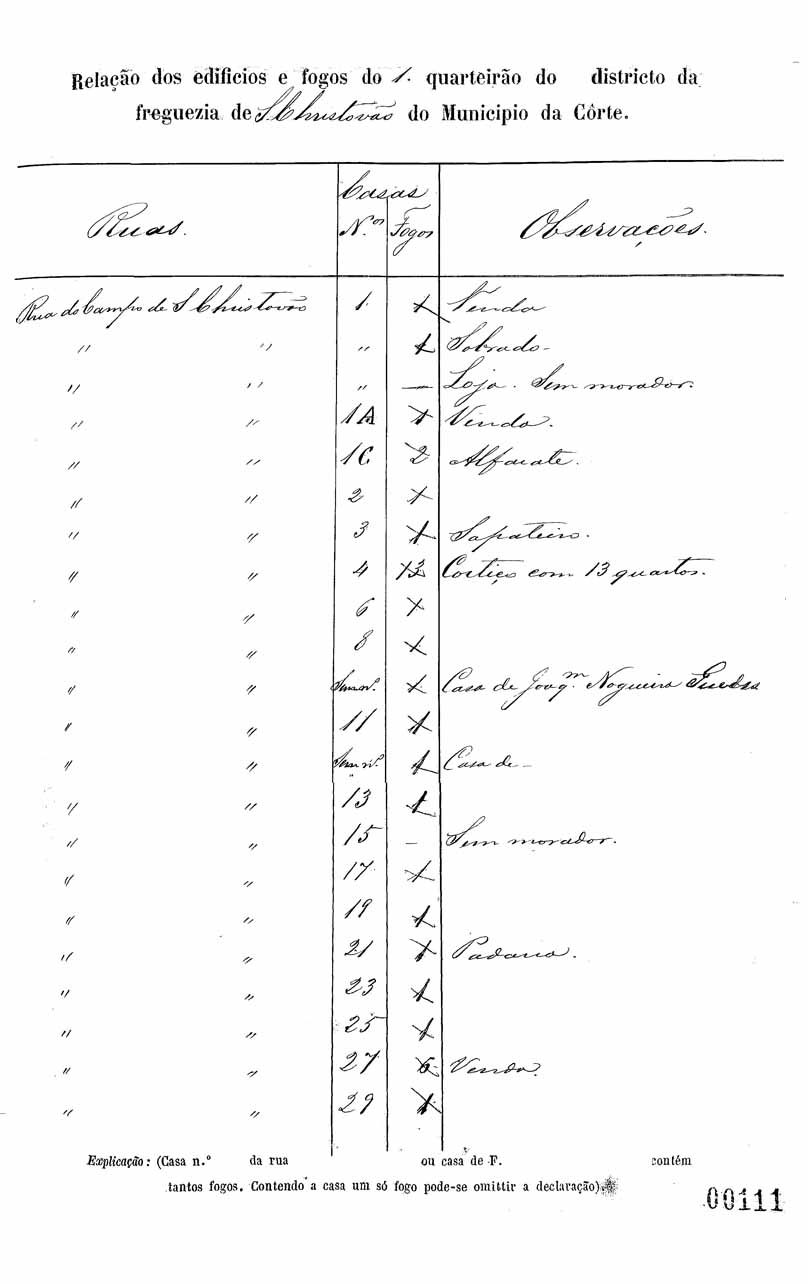 Relação dos edificios e fogos do 1. quarteirão do districto da
freguezia de S Christovão do Municipio da Côrte.
Casas
Ruas. N.os Fogos Observações.
Rua do Campo de S Christovão 1. 1 Venda
" " " 1 Sobrado-
" " " — Loja. Sem morador.
" " 1A 1 Venda.
" " 1C 2 Alfaiate.
" " 2 1
" " 3 1 Sapateiro.
" " 4 13 Cortiço com 13 quartos.
" " 6 1
" " 8 1
" " Sem nº. 1 Casa de Joaq.m Nogueira Guedes
" " 11 1
" " Sem nº. 1 Casa de -
" " 13 1
" " 15 - Sem morador.
" " 17 1
" " 19 1
" " 21 1 Padaria.
" " 23 1
" " 25 1
" " 27 6 Venda.
" " 29 1
Explicação: (Casa n.º da rua ou casa de F. contém
tantos fogos. Contendo a casa um só fogo pode-se omittir a declaração).
00111